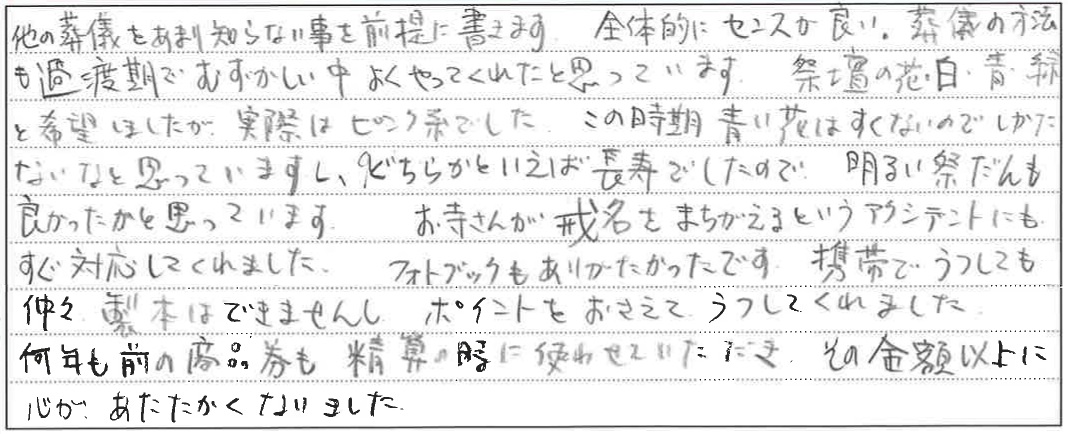 他の葬儀をあまり知らない事を前提に書きます 全体的にセンスが良い。葬儀の方法
も過渡期でむずかしい中よくやってくれたと思っています 祭壇の花・白・青・緑
と希望しましたが実際はピンク系でした この時期青い花はすくないのでしかた
ないなと思っていますし、どちらかといえば長寿でしたので 明るい祭だんも
良かったかと思っています お寺さんが戒名をまちがえるというアクシデントにも
すぐ対応してくれました、 フォトブックもありがたかったです 携帯でうつしても
仲々製本はできませんし ポイントをおさえてうつしてくれました
何年も前の商品券も精算の時に使わせていただき その金額以上に
心があたたかくなりました